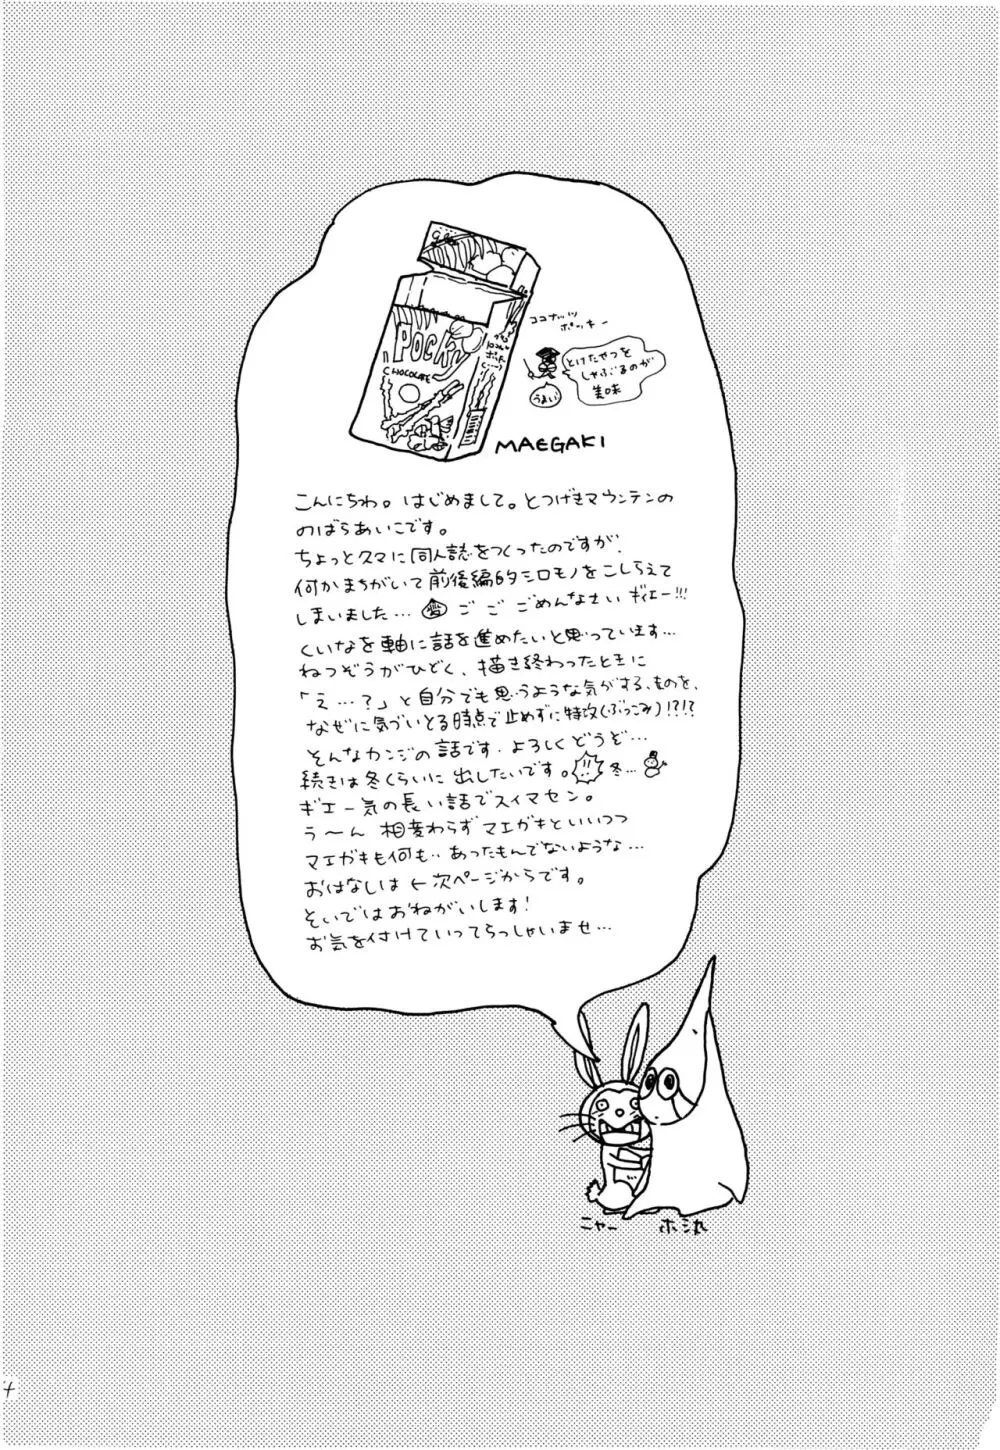 glico
POCKY
CHOCOLATE
ココナッツ
ポッキー
とけたやつを
しゃぶるのが
美味
うまい
MAEGAKI
こんにちわ。はじめまして。とつげきマウンテンの
のばらあいこです。
ちょっと久々に同人誌をつくったのですが、
何かまちがいて前後編的シロモノをこしらえて
しまいました… ごごごめんなさいギィエー!!!
くいなを軸に話を進めたいと思っています…
ねつぞうがひどく、描き終わったときに
「え…？」と自分でも思うような気がする、ものを、
なぜに気づいとる時点で止めずに特攻(ぶっこみ)!?!?
そんなカンジの話です。よろしくどうぞ…
続きは冬くらいに出したいです。冬…
ギエー気の長い話でスイマセン。
う〜ん 相変わらずマエガキといいつつ
マエガキも何も‥あったもんでないような…
おはなしは←次ページからです。
そいではおねがいします!
お気を付けていってらっしゃいませ…
ニャー
ホシ丸
4